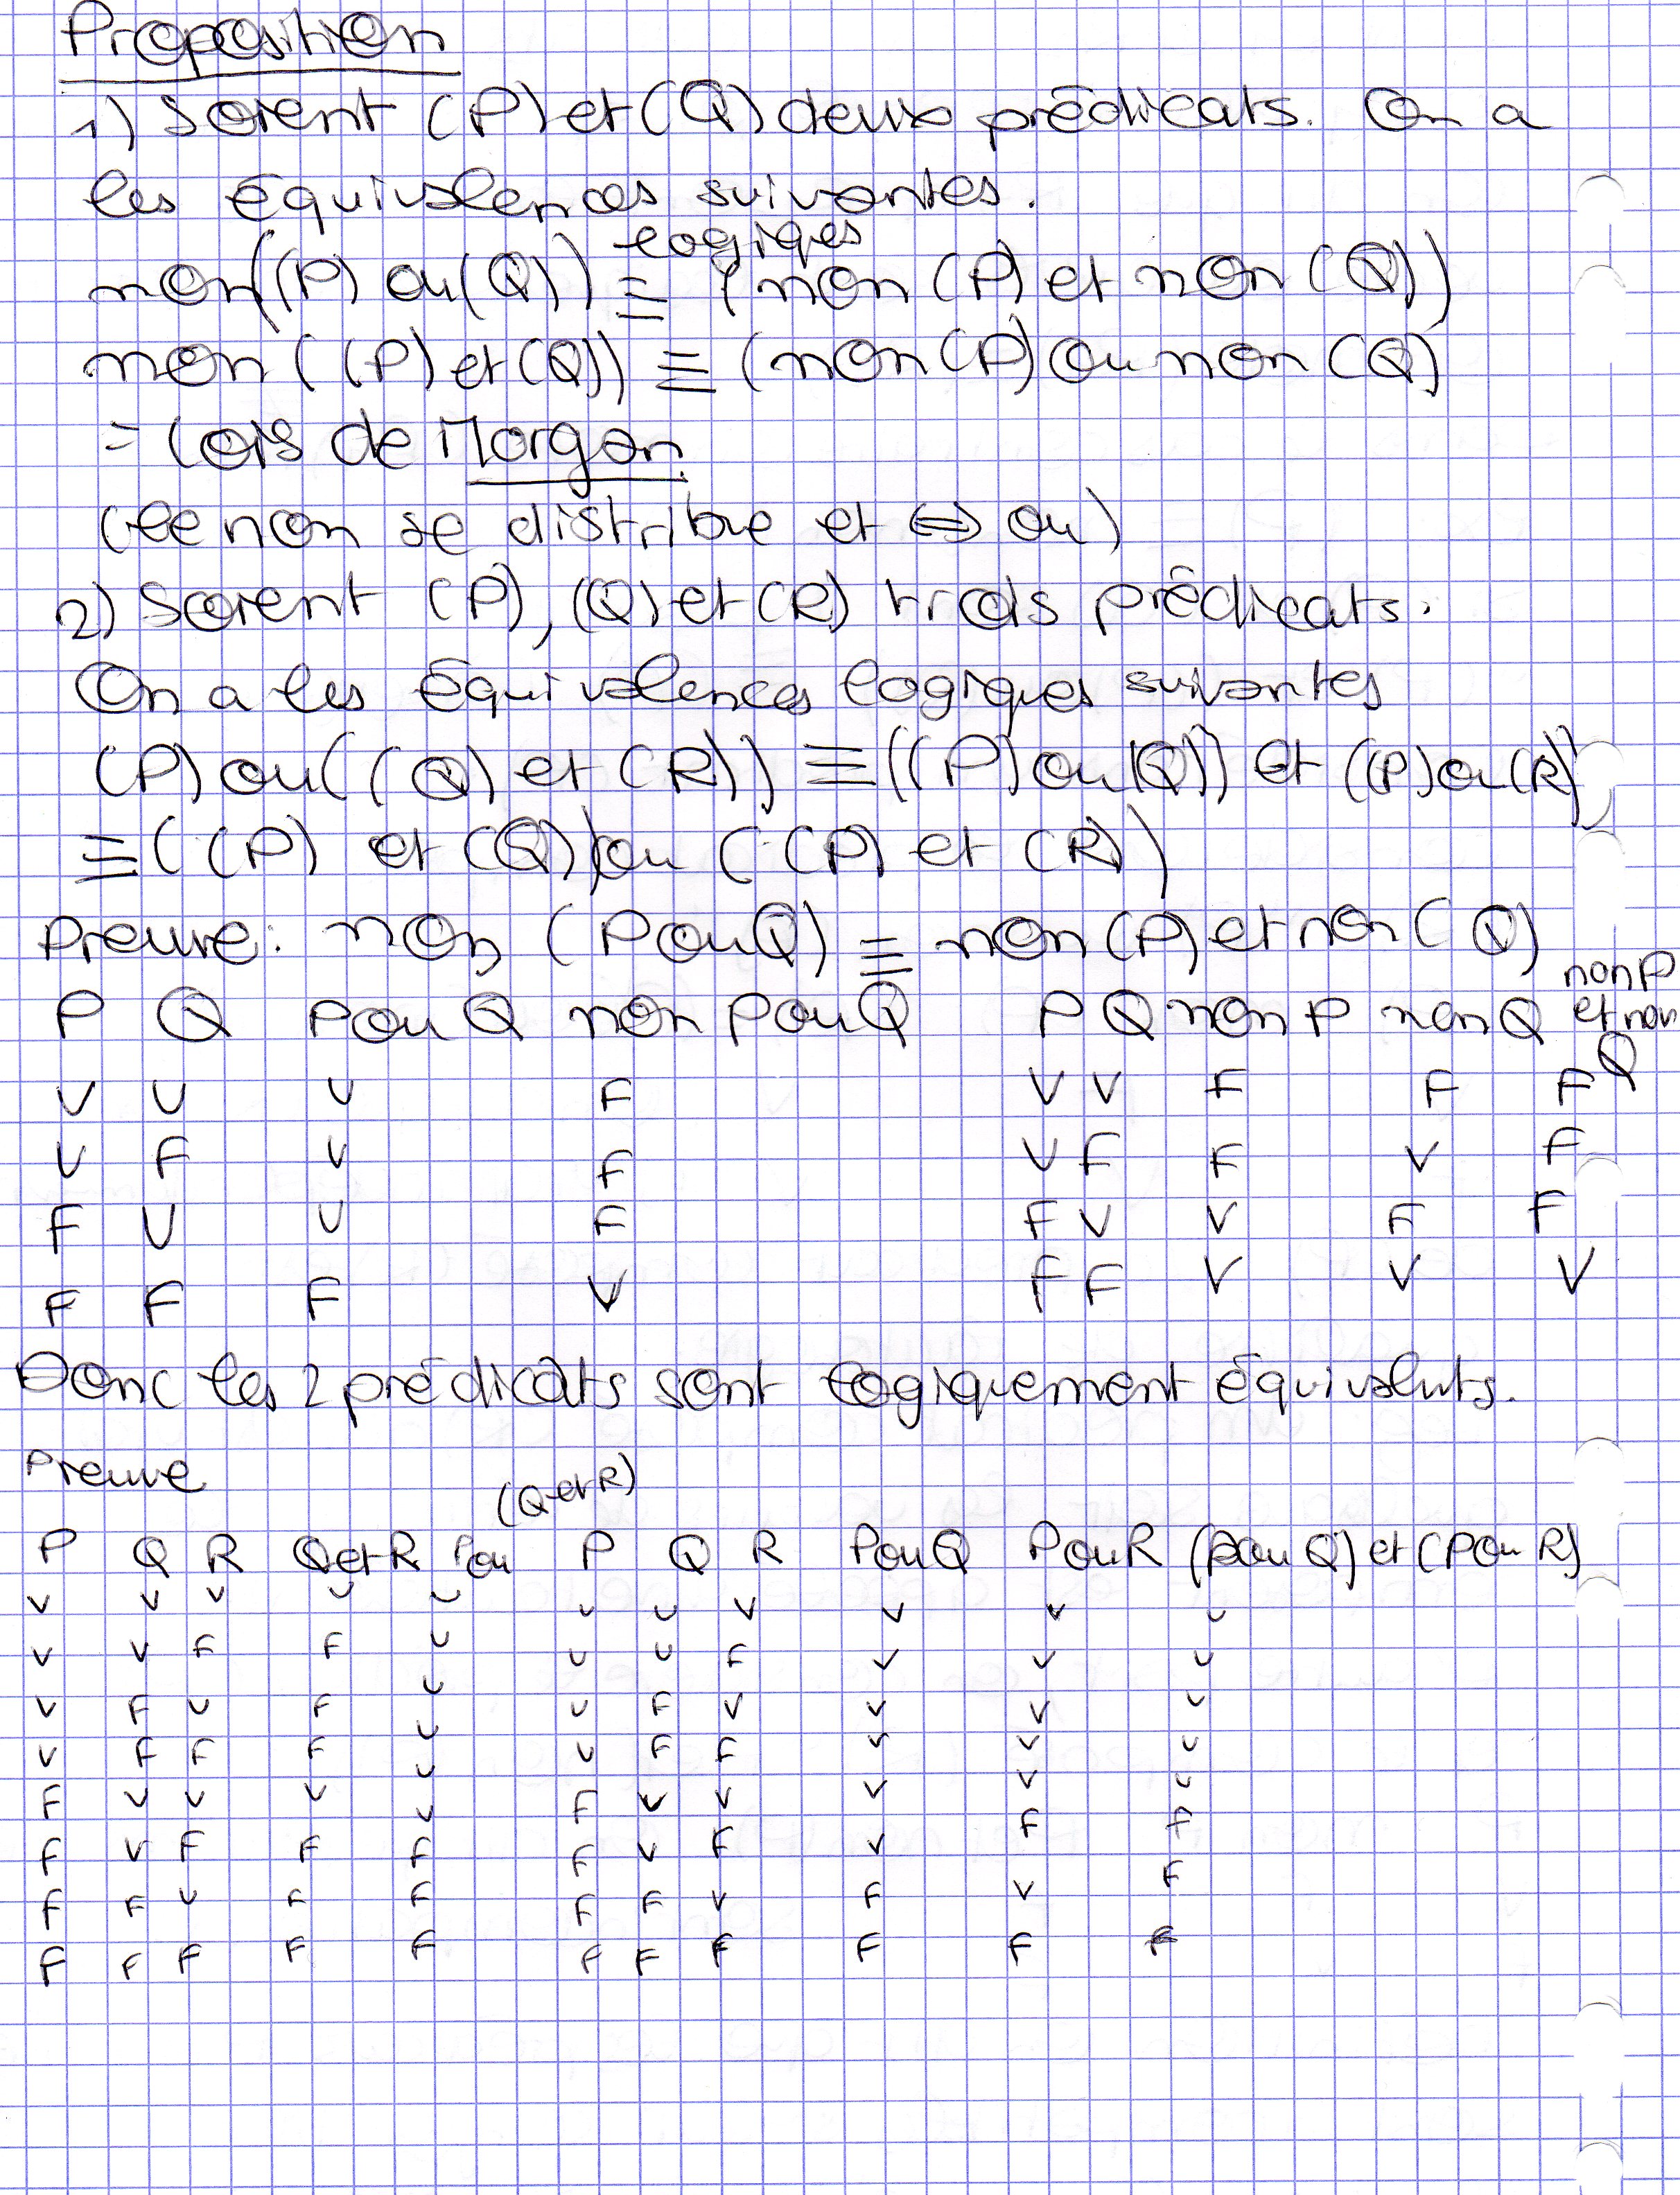 Proposition
1) Soient (P) et (Q) deux prédicats. On a
les équivalences suivantes.
logiques
non((P) ou (Q)) ≡ (non (P) et non (Q))
non ((P) et (Q)) ≡ (non (P) ou non (Q)
= Lois de Morgan
(le non se distribue et ⇔ ou)
2) Soient (P), (Q) et (R) trois prédicats.
On a les équivalences logiques suivantes
(P) ou ((Q) et (R)) ≡ ((P) ou (Q)) et ((P) ou (R)
≡ ((P) et (Q)) ou ((P) et (R))
Preuve : non (P ou Q) ≡ non (P) et non (Q)
P Q P ou Q non P ou Q P Q non P non Q non P et non Q
V V V F V V F F F
V F V F V F F V F
F V V F F V V F F
F F F V F F V V V
Donc les 2 prédicats sont logiquement équivalents.
Preuve
P Q R Q et R P ou (Q et R) P Q R P ou Q P ou R (P ou Q) et (P ou R)
V V V V V V V V V V V
V V F F V V V F V V V
V F V F V V F V V V V
V F F F V V F F V V V
F V V V V F V V V V V
F V F F V F V F V F F
F F V F F F F V F V F
F F F F F F F F F F F
F